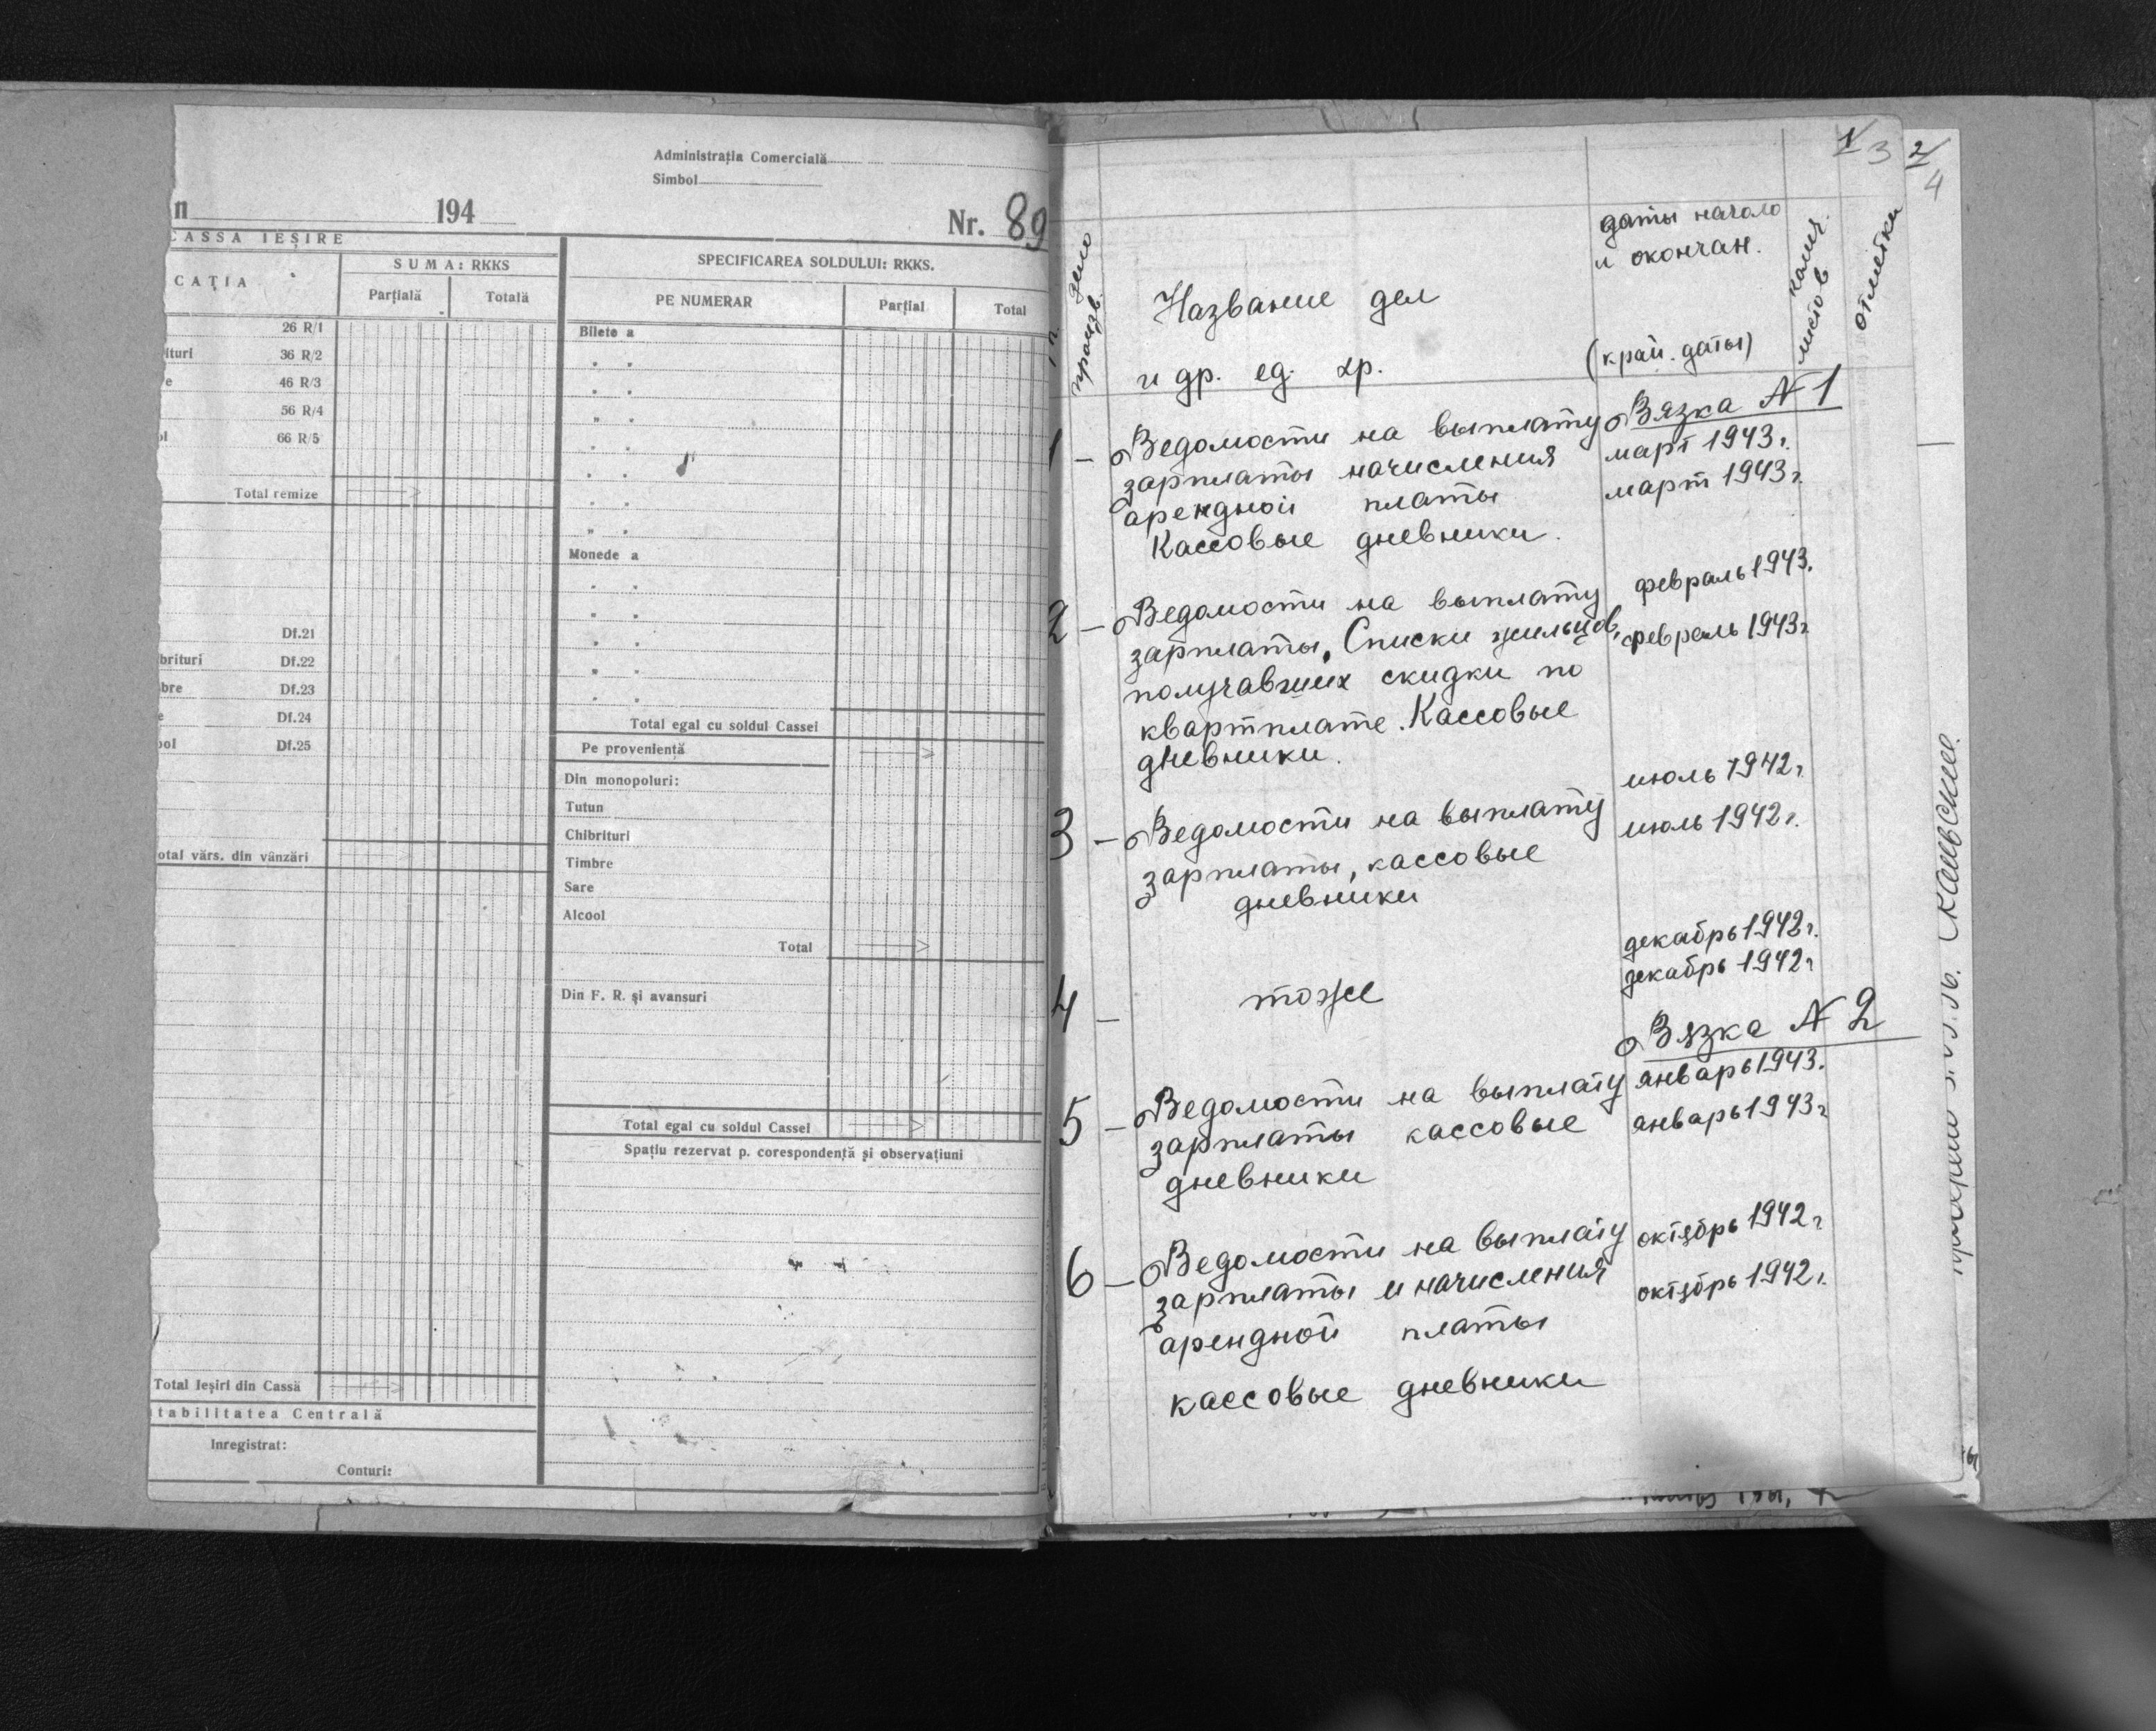 Administrația Comercială
Simbol
n 194 Nr. 89
CASSA IEȘIRE
CAȚIA
SUMA: RKKS
Parțială Totală
26 R/1
ituri 36 R/2
e 46 R/3
56 R/4
ol 66 R/5
Total remize
Df.21
brituri Df.22
bre Df.23
e Df.24
ool Df.25
otal vărs. din vânzări
Total Ieșiri din Cassă
tabilitatea Centrală
Inregistrat:
Conturi:
SPECIFICAREA SOLDULUI: RKKS.
PE NUMERAR Parțial Total
Bilete a
Monede a
Total egal cu soldul Cassei
Pe proveniență
Din monopoluri:
Tutun
Chibrituri
Timbre
Sare
Alcool
Total
Din F. R. și avansuri
Total egal cu soldul Cassei
Spațiu rezervat p. corespondență și observațiuni
1/3 2/4
Название дел
и др. ед. хр.
даты начало
и окончан.
(край. даты)
колич.
листов
отметки
Вязка N 1
1 - Ведомости на выплату март 1943г.
зарплаты начисления март 1943г.
арендной платы
Кассовые дневники.
2 - Ведомости на выплату февраль 1943.
зарплаты, Списки жильцов, февраль 1943г
получавших скидки по
квартплате. Кассовые
дневники.
3 - Ведомости на выплату июль 1942г
зарплаты, кассовые июль 1942г.
дневники
4 - тоже декабрь 1942г.
декабрь 1942г
Вязка N 2
5 - Ведомости на выплату январь 1943.
зарплаты кассовые январь 1943г
дневники
6 - Ведомости на выплату октябрь 1942г
зарплаты и начисления октябрь 1942г.
арендной платы
кассовые дневники